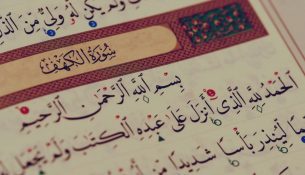 وَلَمْ يَكُن لَّهُ وَلِيٌّ مِّنَ الذُّلِّ
سُورَةُ الكَهْفِ
بِسْمِ اللَّهِ الرَّحْمَٰنِ الرَّحِيمِ
الْحَمْدُ لِلَّهِ الَّذِي أَنزَلَ عَلَىٰ عَبْدِهِ الْكِتَٰبَ وَلَمْ يَجْعَل
لِّيُنذِرَ بَأْسًا شَدِيدًا مِّن